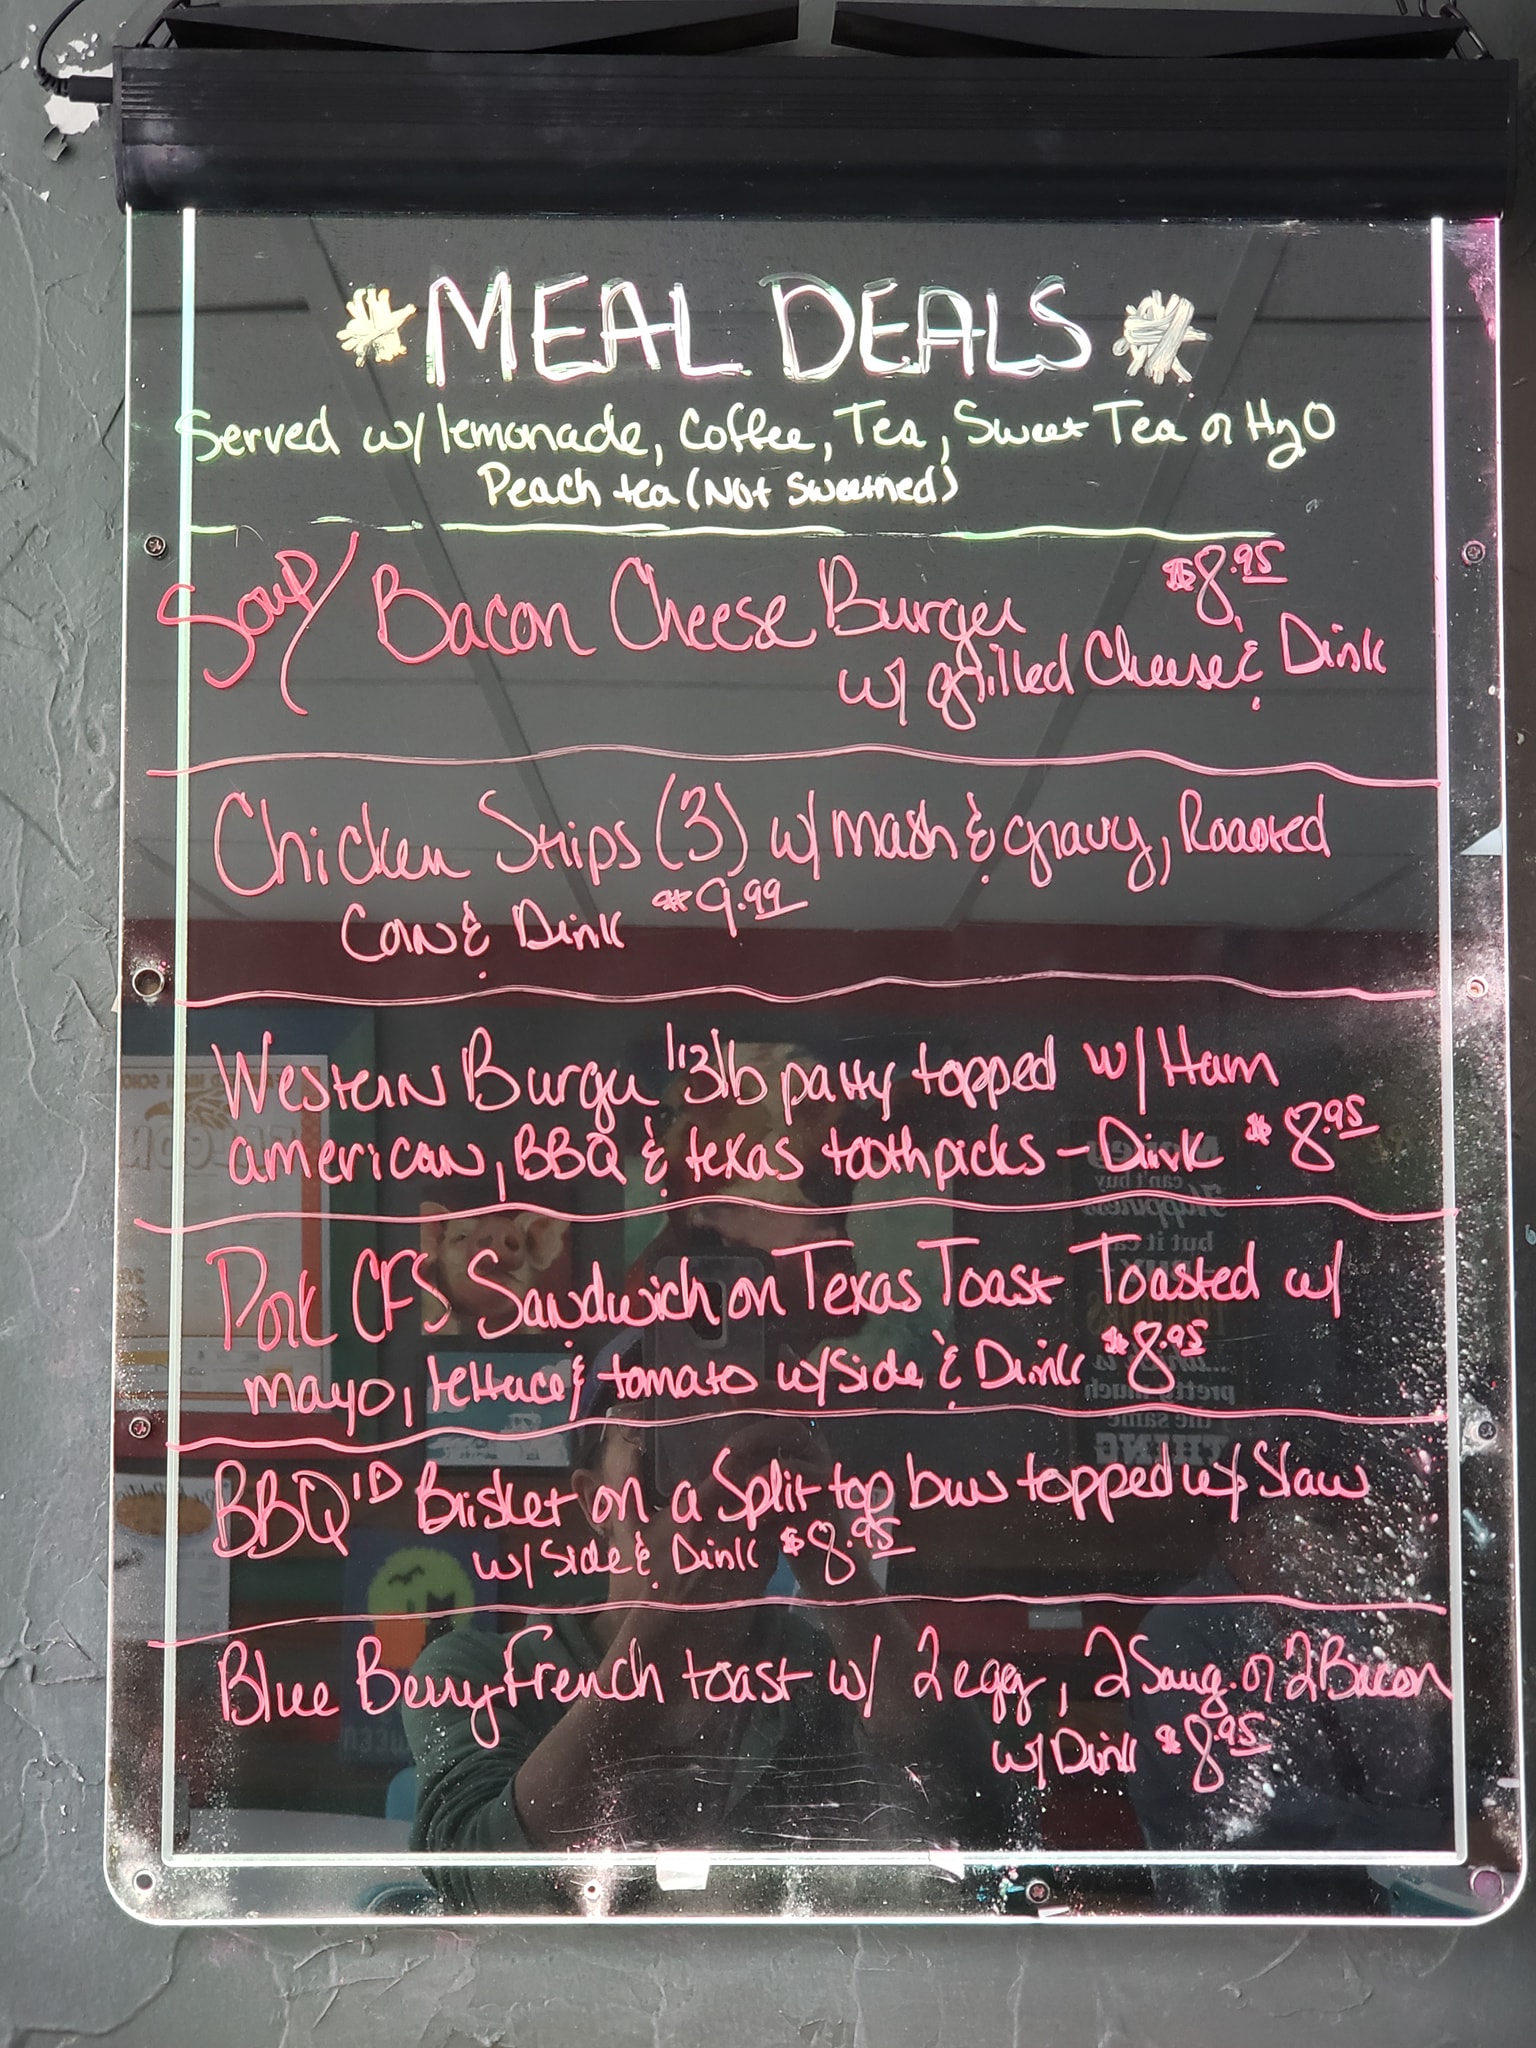 MEAL DEALS
Served w/ lemonade, Coffee, Tea, Sweet Tea or H2O
Peach tea (Not Sweetned)
Soup/ Bacon Cheese Burger $8.95
w/ grilled Cheese & Dink
Chicken Strips (3) w/ mash & gravy, Roasted
Corn & Drink $9.99
Western Burger 1/3 lb patty topped w/ Ham
american, BBQ & texas toothpicks - Drink $8.95
Pork CFS Sandwich on Texas Toast Toasted w/
mayo, lettuce & tomato w/ side & Drink $8.95
BBQ'D Brisket on a Split top bun topped w/ Slaw
w/ Side & Drink $8.95
Blue Berry French toast w/ 2 egg, 2 Saug. or 2 Bacon
w/ Drink $8.95
Money
can't buy
Happiness
but it can
pretty much
the same
THING